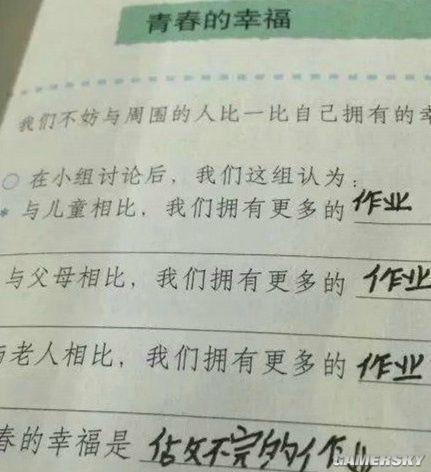 青春的幸福
我们不妨与周围的人比一比自己拥有的幸
○ 在小组讨论后，我们这组认为：
* 与儿童相比，我们拥有更多的 作业
与父母相比，我们拥有更多的 作业
与老人相比，我们拥有更多的 作业
春的幸福是 做不完的作业
GAMERSKY